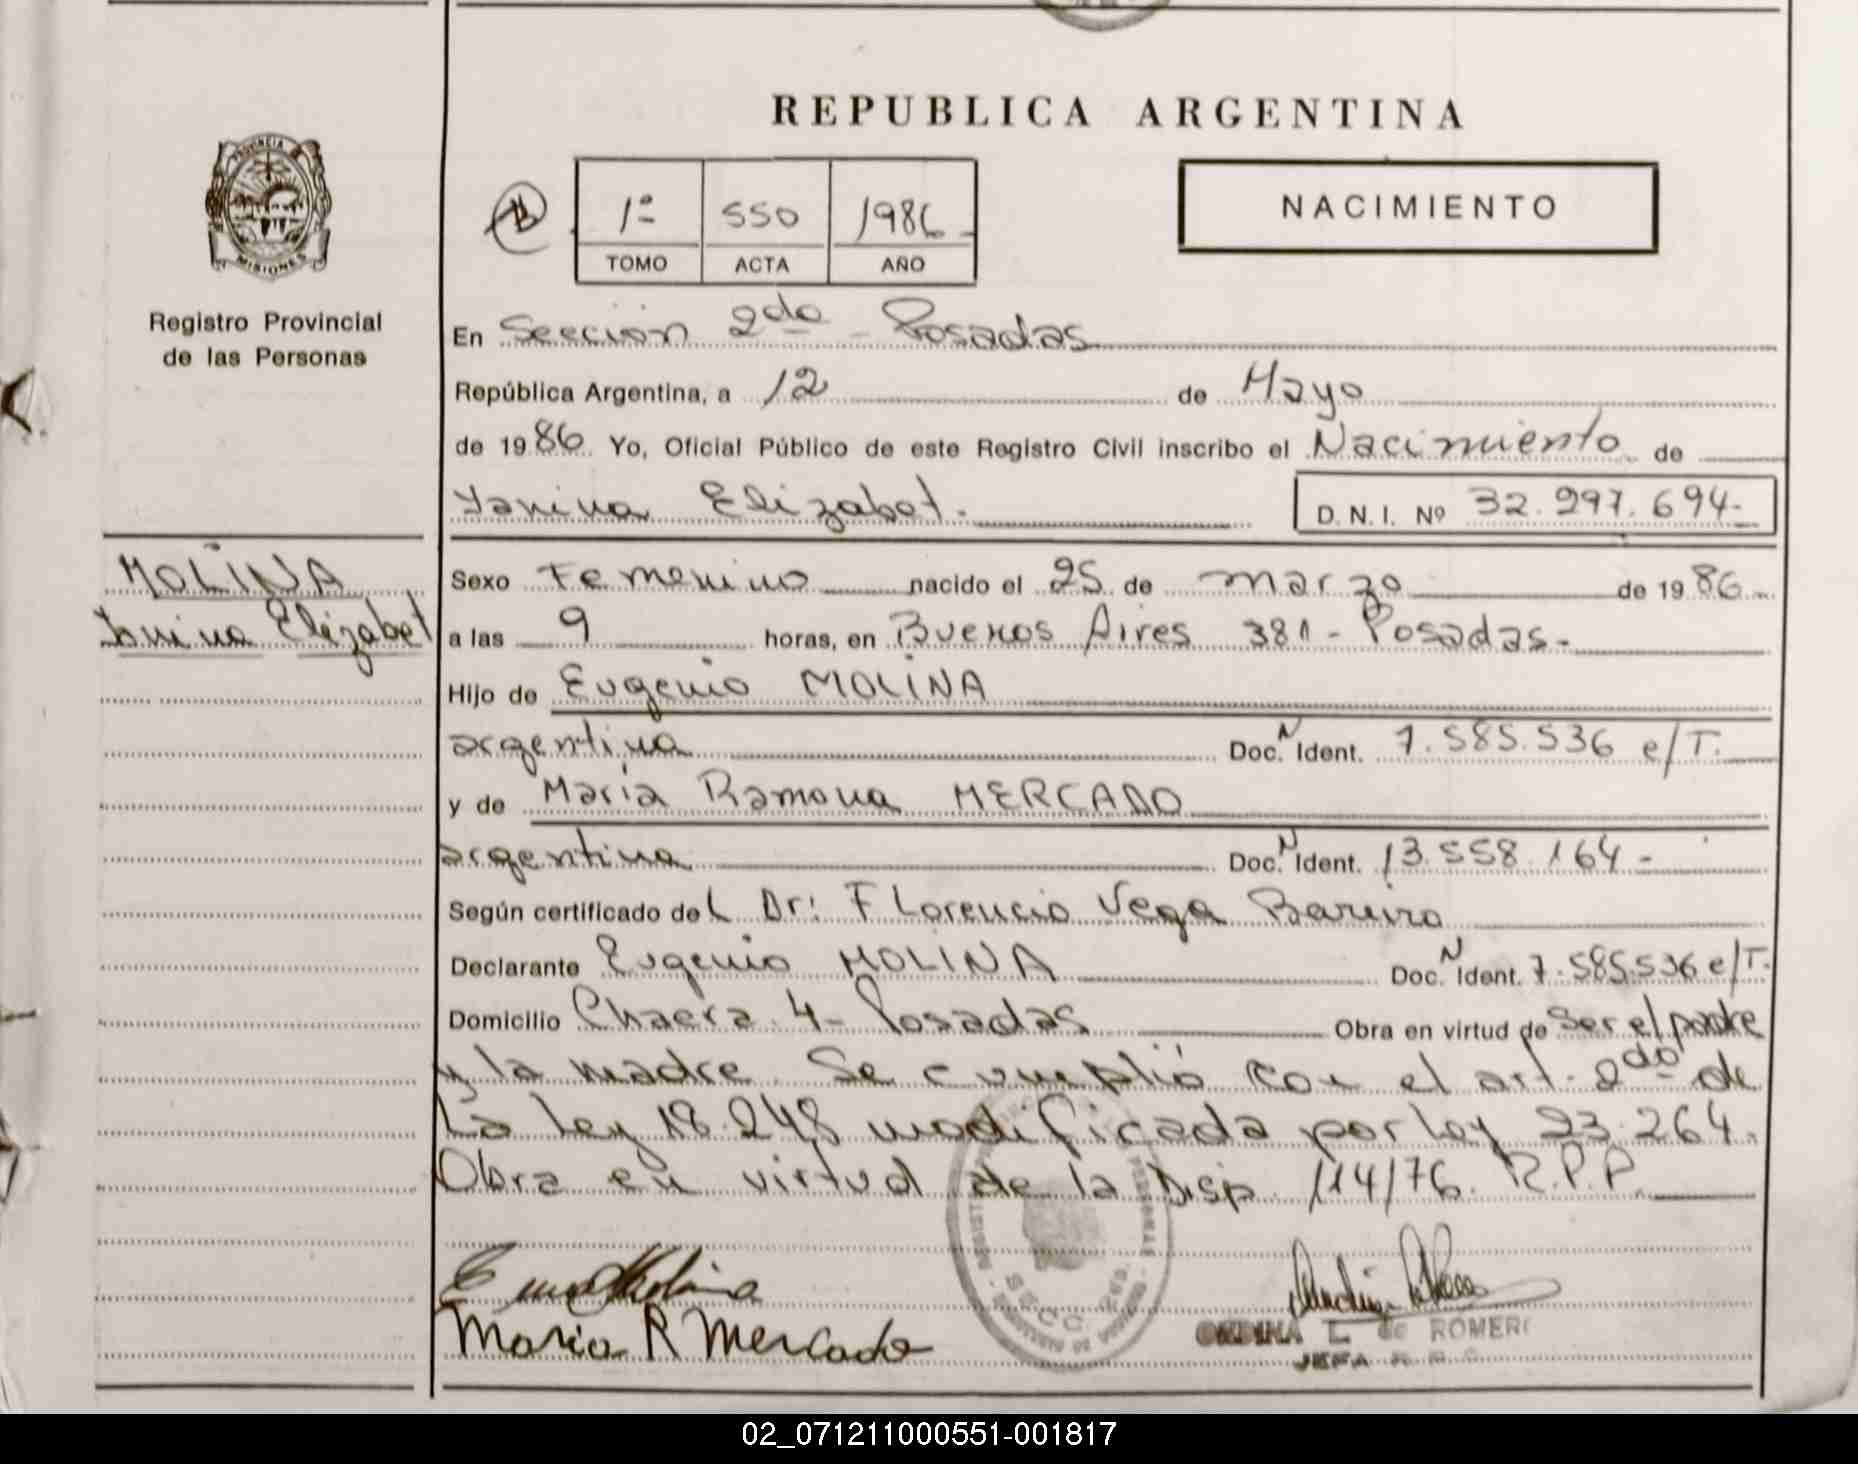 REPUBLICA ARGENTINA
PROVINCIA
MISIONES
Registro Provincial
de las Personas
1º 550 1986
TOMO ACTA AÑO
NACIMIENTO
En Sección 2da - Posadas
República Argentina, a 12 de Mayo
de 1986. Yo, Oficial Público de este Registro Civil inscribo el Nacimiento de
Yanina Elizabet. D. N. I. Nº 32.297.694-
MOLINA
Yanina Elizabet
Sexo Femenino nacido el 25 de marzo de 1986-
a las 9 horas, en Buenos Aires 381 - Posadas-
Hijo de Eugenio MOLINA
argentina Doc. N Ident. 7.585.536 e/T.
y de María Ramona MERCADO
argentina Doc. N Ident. 13.558.164-
Según certificado del Dr: Florencio Vega Bareiro
Declarante Eugenio MOLINA Doc. N Ident. 7.585.536 e/T.
Domicilio Chacra 4- Posadas Obra en virtud de ser el padre
y la madre. Se cumplió con el art. 2do de
La Ley 18.248 modificada por Ley 23.264.
Obra en virtud de la Disp. 114/76. R.P.P.
Molina
Maria R Mercado
SECC. 2da.
L. de ROMERO
JEFA
02_071211000551-001817